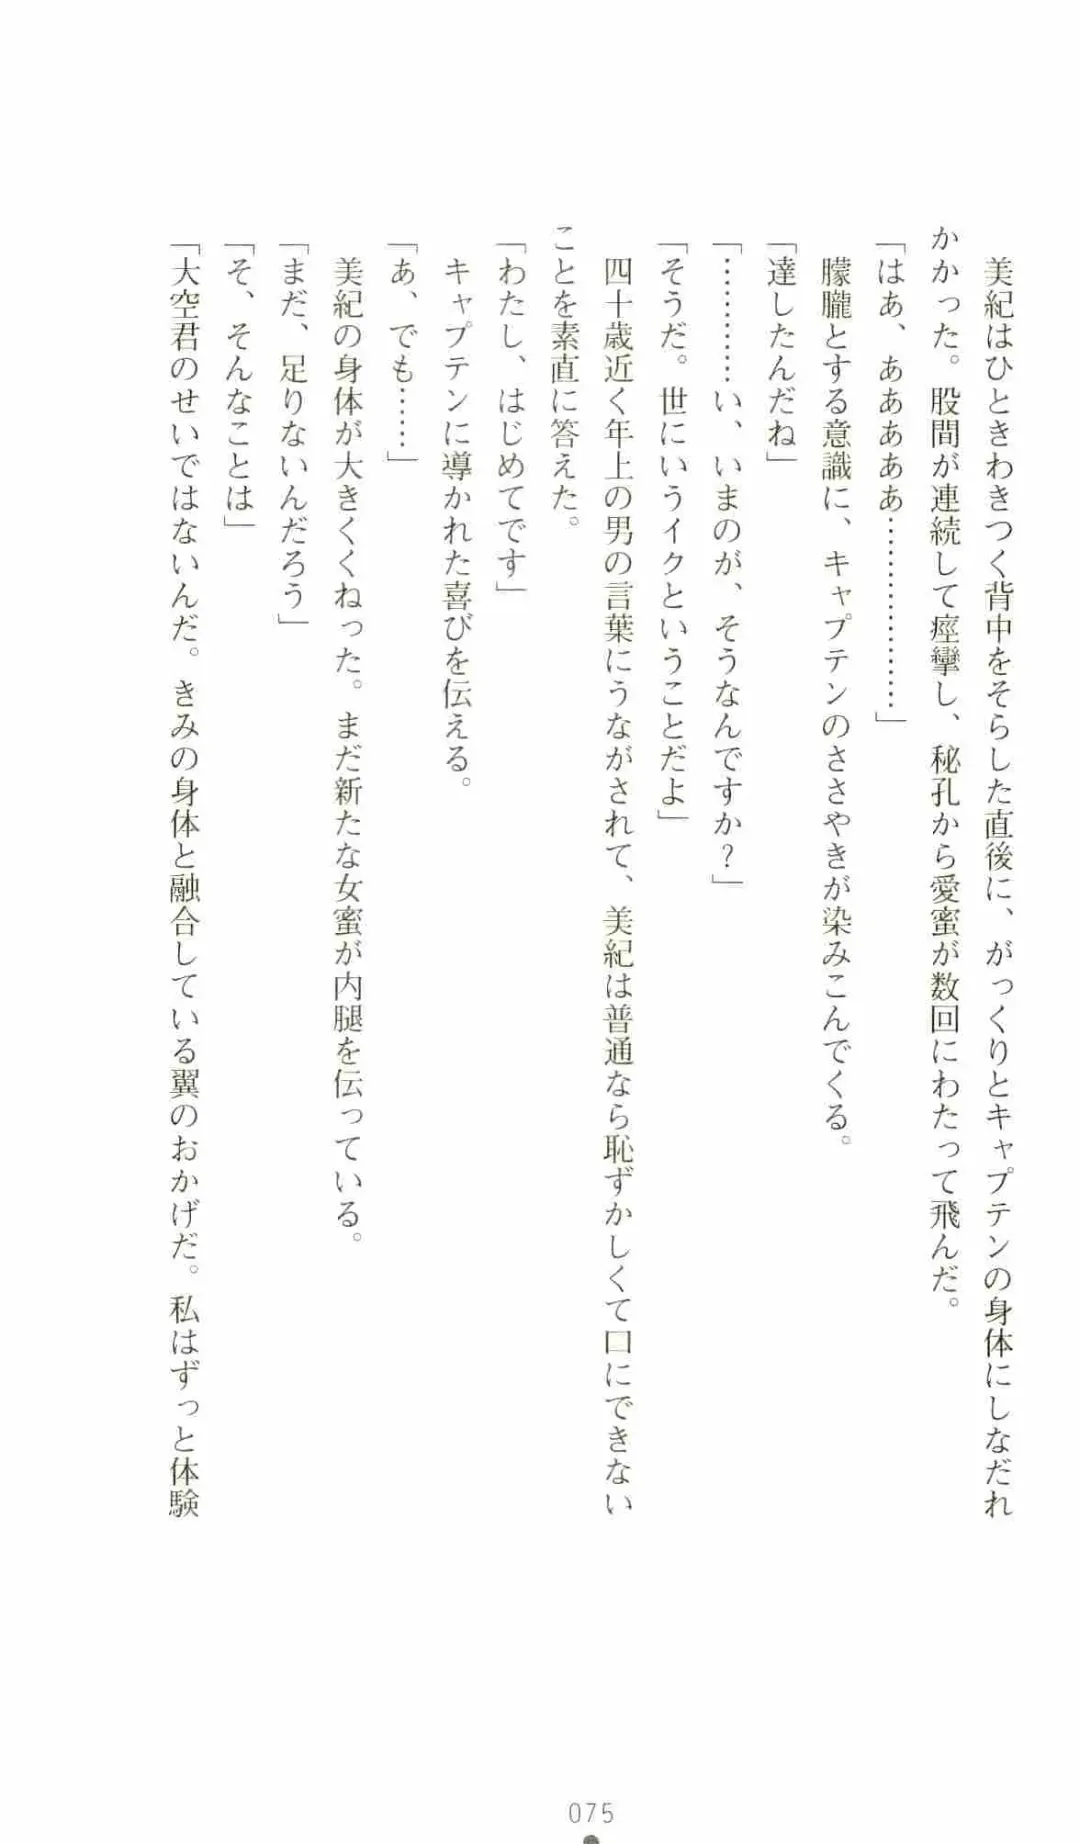 美紀はひときわきつく背中をそらした直後に、がっくりとキャプテンの身体にしなだれ
かかった。股間が連続して痙攣し、秘孔から愛蜜が数回にわたって飛んだ。
「はあ、ああああ…………」
朦朧とする意識に、キャプテンのささやきが染みこんでくる。
「達したんだね」
「………い、いまのが、そうなんですか？」
「そうだ。世にいうイクということだよ」
四十歳近く年上の男の言葉にうながされて、美紀は普通なら恥ずかしくて口にできない
ことを素直に答えた。
「わたし、はじめてです」
キャプテンに導かれた喜びを伝える。
「あ、でも……」
美紀の身体が大きくくねった。まだ新たな女蜜が内腿を伝っている。
「まだ、足りないんだろう」
「そ、そんなことは」
「大空君のせいではないんだ。きみの身体と融合している翼のおかげだ。私はずっと体験
075